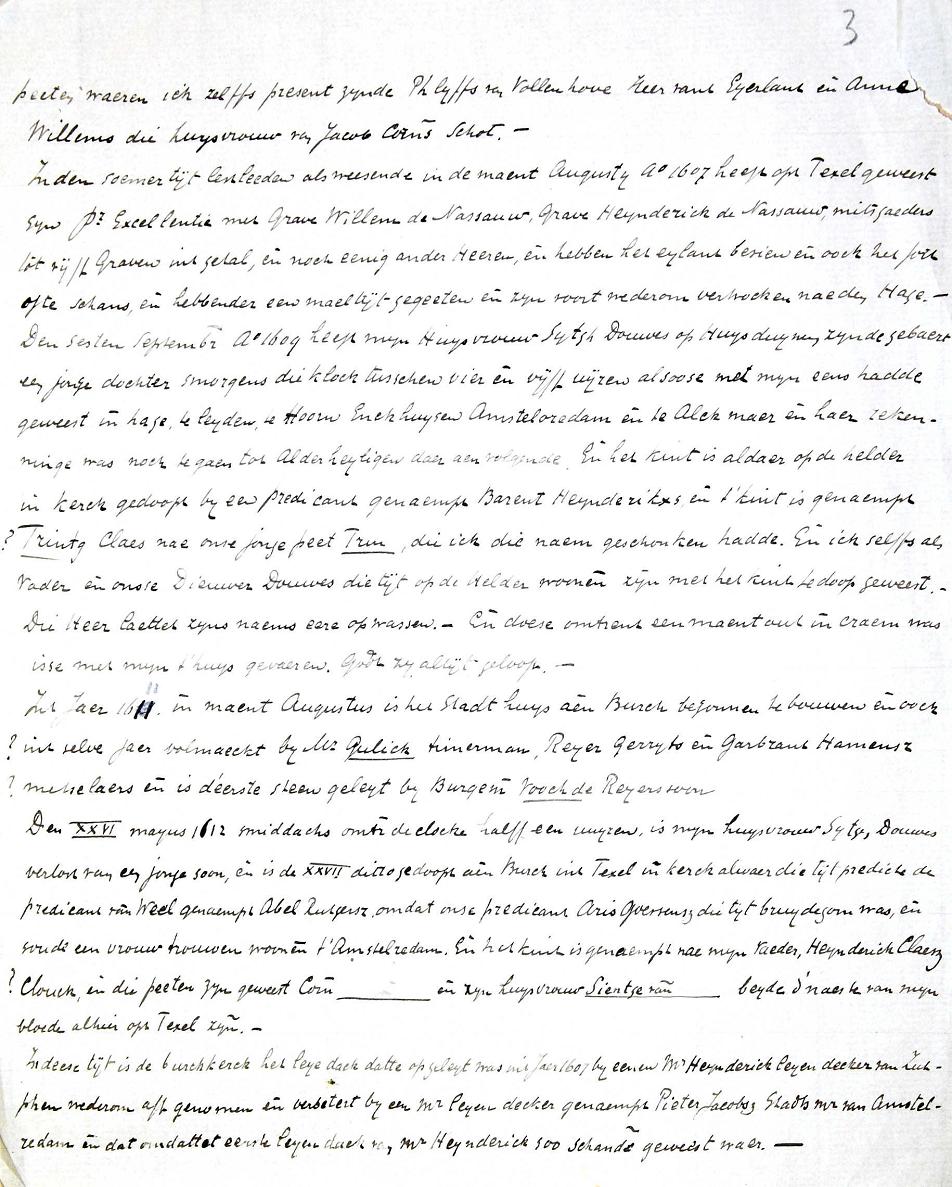 3
peeten waeren ick zelffs present zynde Phlyffs van Vollenhove Heer vant Eyerlant en Anne
Willems die huysvrouw van Jacob Corns Schot. —
Inden soemertijt lestleeden als weesende in de maent Augusty Ao 1607 heeft opt Texel geweest
syn Pr Excellentie met Grave Willem de Nassauw, Grave Heynderick de Nassauw, mitsgaeders
tot vijff Graven int getal, en noch eenig ander Heeren, en hebben het eylant besien en oock het fort
ofte schans, en hebbender een maeltijt gegeeten en zyn voort wederom vertrocken nae den Hage. —
Den sesten Septembr Ao 1609 heeft myn Huysvrouw Sytgh Douwes op Huysduynen zynde gebaert
een jonge dochter smorgens die klock tusschen vier en vijff uyren alsoose met myn eens hadde
geweest in hage, te leyden, te Hoorn Enckhuysen Amstelredam en te Alckmaer en haer reken-
ninge was noch te gaen tot Alderheyligen daer aen volgende. En het kint is aldaer op de helder
in kerck gedoopt by een predicant genaempt Barent Heynderikxs en t'kint is genaempt
? Trintg Claes nae onse jonge peet Trin, die ick die naem geschonken hadde. En ick selffs als
Vader en onsse Dieuwer Douwes die tijt op de Helder woonen zijn met het kint te doop geweest. —
Die Heer laettet zyns naems eere opwassen. — En doese omtrent een maent out in craem was
isse met myn t'huys gevaeren. Godt zy altijt geloof. —
11
Int Jaer 1611. in maent Augustus is het Stadthuys aen Burch begonnen te bouwen en oock
? int selve jaer volmaeckt by Mr Gulick timerman, Reyer Gerryts en Garbrant Hamensz
? metselaers en is d'eerste steen geleyt by Burgem Voochde Reyerssoon
Den XXVI mayus 1612 smiddachs omtr de clocke halff een uuyren, is myn huysvrouw Sytge Douwes
verlost van een jonge soon, en is de XXVII ditto gedoopt aen Burch int Texel in kerck alwaer die tijt predicte de
predicant van Weel genaempt Abel Rutgersz, omdat onse predicant Aris Goverssensz die tijt bruydegom was, en
soude een vrouw trouwen woonen t'Amstelredam. En het kint is genaempt nae myn Vaeder, Heynderick Claesz
? Clouck, en die peeten zyn geweest Corn ______ en zyn huysvrouw Sientge van ______ beyde d'naeste van myn
bloede alhier opt Texel zyn. —
Indeese tijt is de burchkerck het leye dack datte opgeleyt was int Jaer 1607 by eenen Mr Heynderick leyendecker van Zut-
phen wederom aff genomen en verbetert by een mr leyen decker genaempt Pieter Jacobsz Stadts mr van Amstel-
redam en dat omdattet eerste leyen dack van mr Heynderick soo schande geweest waer. —